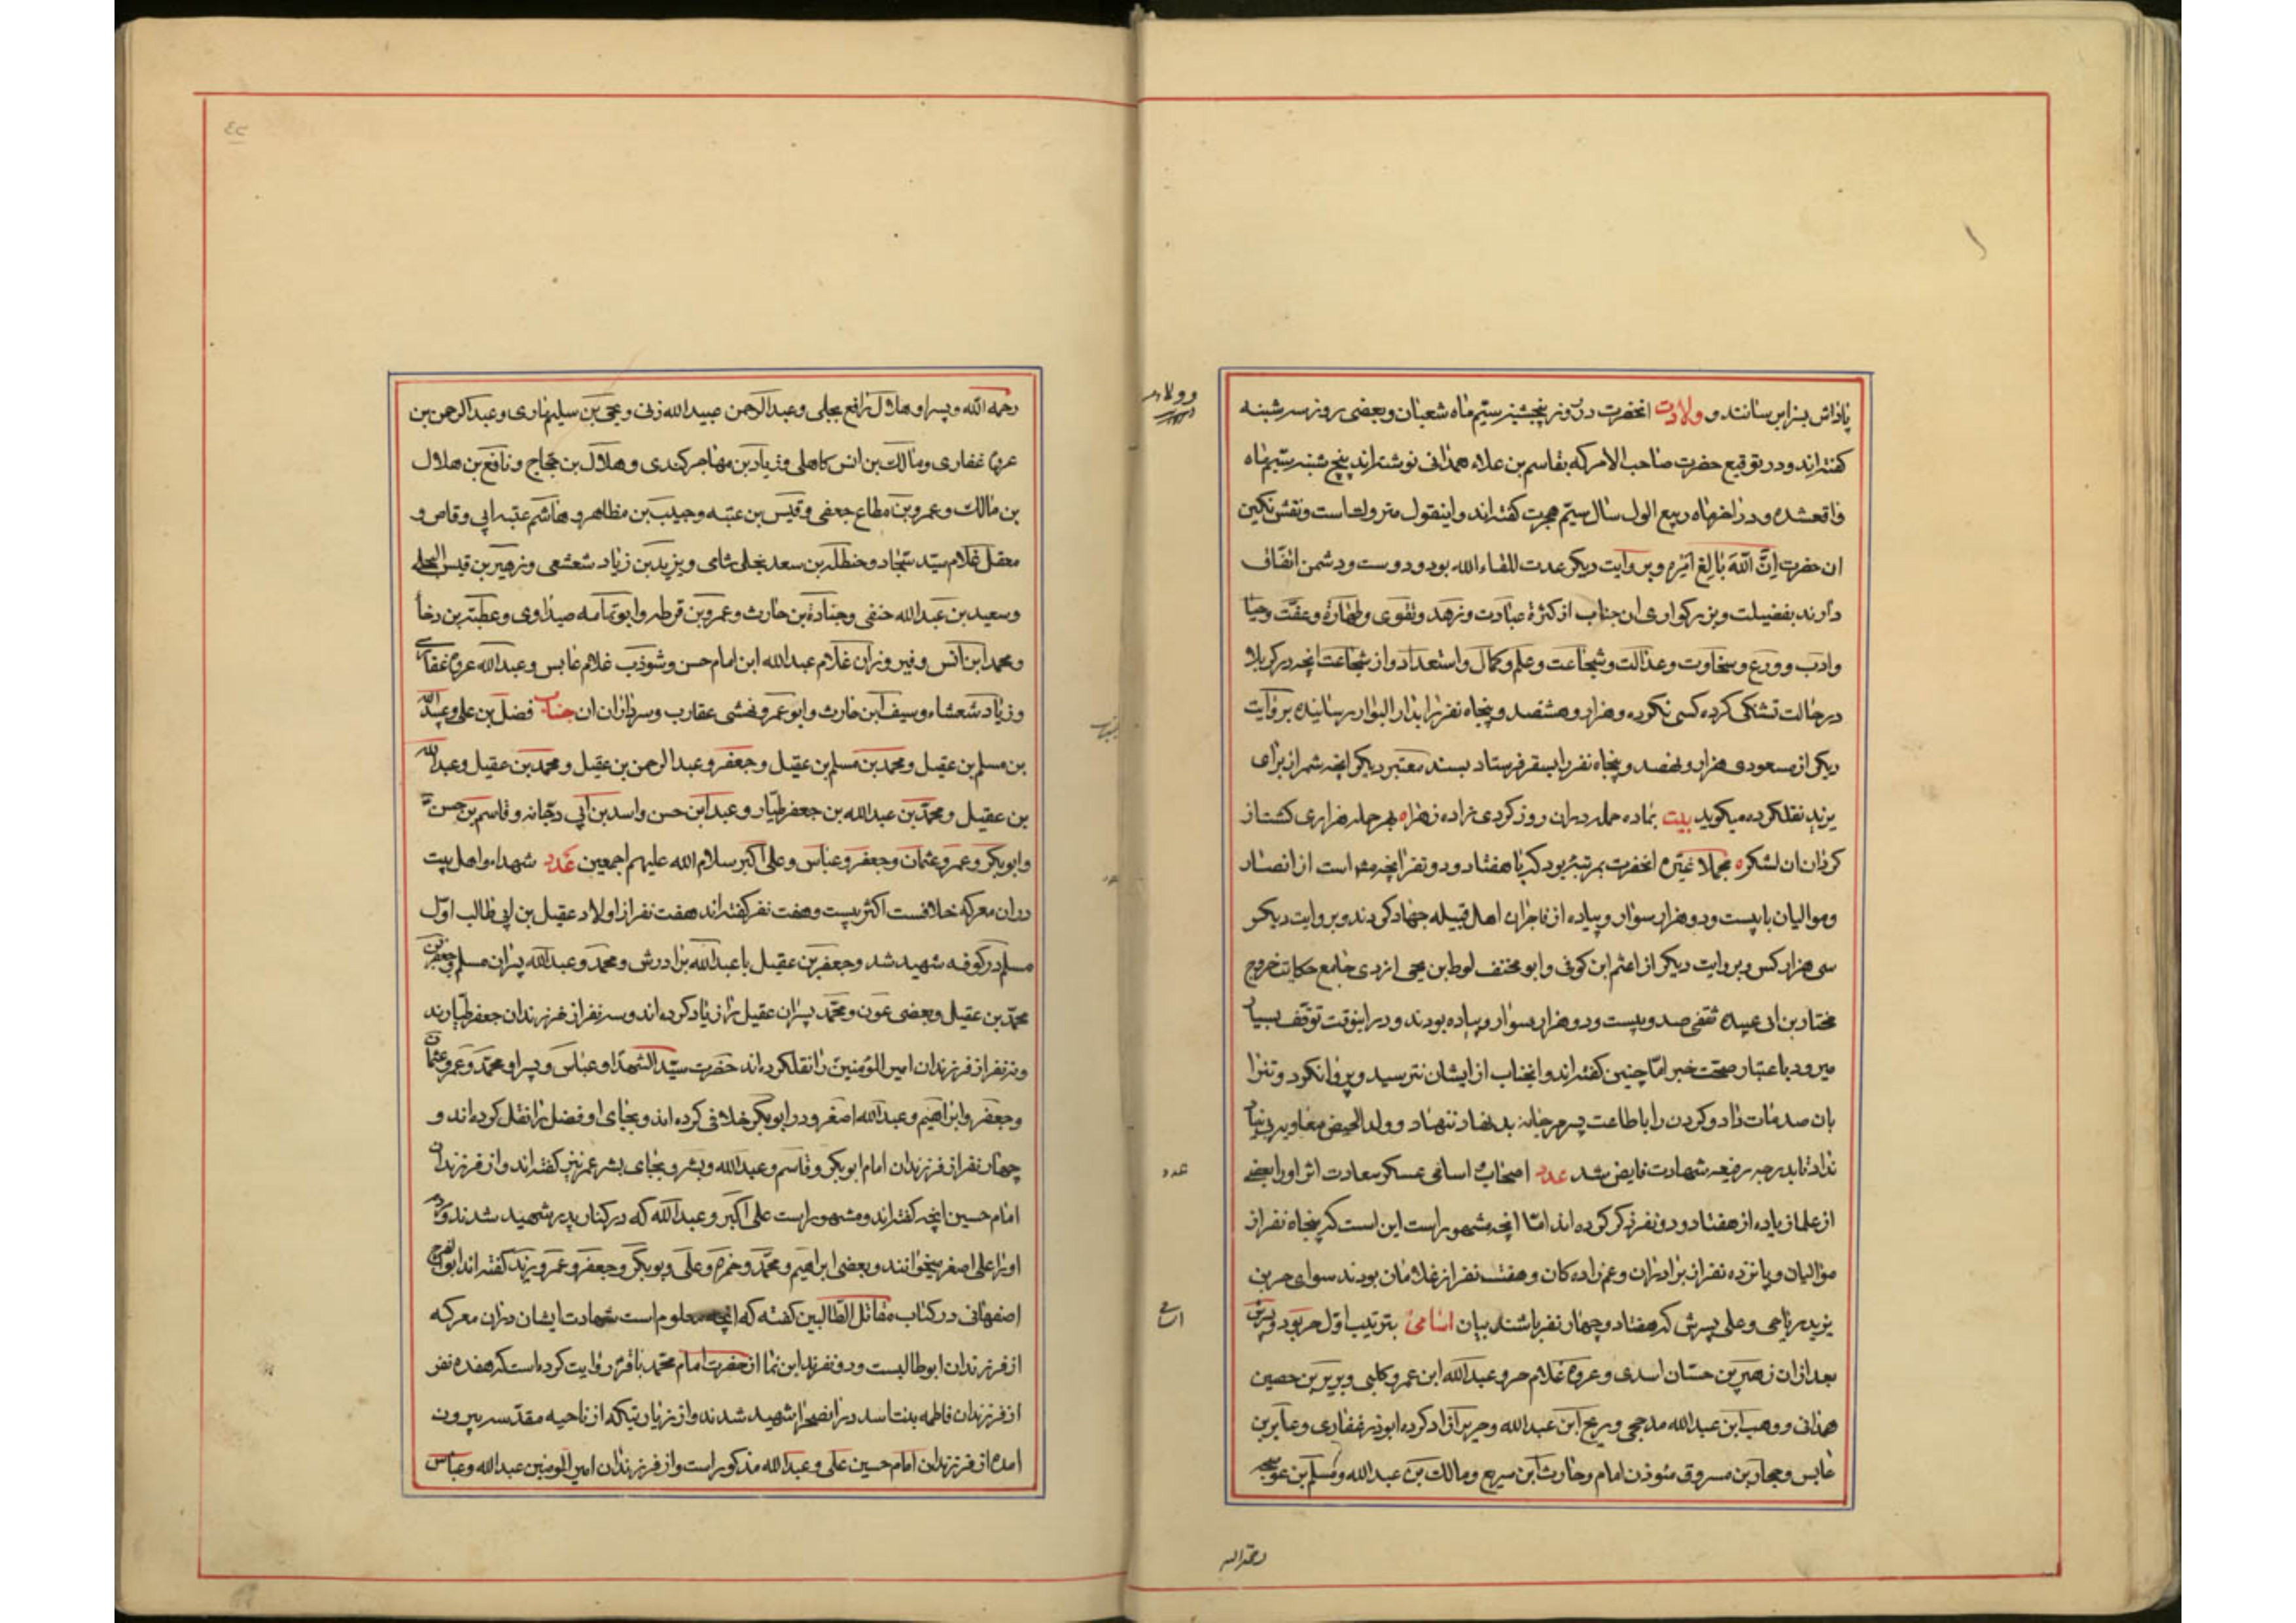 پاداش بسزا برسانند و ولادت انحضرت در روز پنجشنبه سیم ماه شعبان و بعضی روز سه شنبه
کفته اند و در توقیع حضرت صاحب الامر که بقاسم بن علاء همدانی نوشته اند پنج شنبه سیم ماه
واقعشده و در اخر ماه ربیع الول سال سیم هجرت کفته اند و اینقول متروکست و نقش نکین
ان حضرت اِنَّ اللّٰهَ بٰالِغُ اَمْرِهِ و بروایت دیکر عدت للقاء الله بود و دوست و دشمن اتفاق
دارند بفضیلت و بزرکواری ان جناب از کثرة عبادت و زهد و تقوی و طهارة و عفت و حیا
و ادب و ورع و سخاوت و عدالت و شجاعت و علم و کمال و استعداد و از شجاعت انچه در کربلا
در حالت تشنکی کرده کسی نکرده و هزار و هشتصد و پنجاه نفر را بدار البوار رسانیده بروایت
دیکر از مسعودی هزار و نهصد و پنجاه نفر را بسقر فرستاد بسند معتبر دیکر انچه شمر از برای
یزید نقلکرده میکوید بیت نماده حمله دران روز کردی زاده زهرا ه بهر حمله هزاری کشت از
کردان ان لشکر ه مجملا غیرة انحضرت بمرتبۀ بود که با هفتاد و دو نفر انچه مشهور است از انصار
و موالیان با بیست و دو هزار سوار و پیاده از فاجران اهل قبیله جهاد کردند و بروایت دیکر
سی هزار کس و بروایت دیکر از اعثم ابن کوفی و ابو مخنف لوط بن یحیی ازدی جامع حکایت خروج
مختار بن ابی عبیده ثقفی صد و بیست و دو هزار سوار و پیاده بودند و در اینوقت توقف بسیار
میرود باعتبار صحت خبر امّا چنین کفته اند و انجناب از ایشان نترسید و پروا نکرد و تن را
بان صدمات داد و کردن را باطاعت پسر مرجانه بد نهاد ننهاد و ولد الحیض معاویه
نداد تا بدرجه رفیعه شهادت فایض شد عدد اصحاب اسامی عسکر سعادت اثر او را بعضی
از علما زیاده از هفتاد و دو نفر ذکر کرده اند امّا انچه مشهور است این است که پنجاه نفر از
موالیان و پانزده نفر از برادران و عم زاده کان و هفت نفر از غلامان بودند سوای حر بن
یزید ریاحی و علی پسرش که هفتاد و چهار نفر باشند بیان اسامی بترتیب اوّل حر بود و پسرش
بعد ازان زهیر بن حسّان اسدی و عروه غلام حر و عبدالله ابن عمرو کلبی و بریر بن حصین
همدانی و وهب ابن عبدالله مذحجی و ابن عبدالله و ازاد کرده ابوذر غفاری و عابر بن
عابس و حجاز بن مسروق مئوذن امام و حارث ابن سریع و مالک بن عبدالله و مسلم بن عوسجه
رحمة الله
و ولادت
عدد
اسامی
رحمه الله و پسر او و هلال نافع بجلی و عبدالرحمن عبیدالله زنی و یحیی بن سلیم و عبدالرحمن بن
عروه غفاری و مالک بن انس کاهلی و زیاد بن مهاجر کندی و هلال بن حجاج و نافع بن هلال
بن مالک و عمرو بن مطاع جعفی و قیس بن عتبه و حبیب بن مظاهر و هاشم عتبه ابی وقاص و
معقل غلام سیّد سجاد و حنظله بن سعد بجلی شامی و یزید بن زیاد شعشعی و زهیر بن قیس البجلی
و سعید بن عبدالله حنفی و جنادة بن حارث و عمرو بن قرطه و ابو تمامه صیداوی و عطیته بن
و محمد ابن انس و فیروزان غلام عبدالله ابن امام حسن و شوذب غلام عابس و عبدالله عروه غفاری
و زیاد شعشاء و سیف ابن حارث و ابو عمرو عقارب و سرداران ان جناب فضل بن علی و عبدالله
بن مسلم بن عقیل و محمد بن مسلم بن عقیل و جعفر و عبدالرحمن بن عقیل و محمد بن عقیل و عبدالله
بن عقیل و محمد بن عبدالله بن جعفر طیّار و عبد ابن حسن و اسد بن ابی دجانه و قاسم بن حسن
و ابوبکر و عمر و عثمان و جعفر و عباس و علی اکبر سلام الله علیهم اجمعین عَدد شهداء و اهل بیت
دران معرکه خلافست اکثر بیست و هفت نفر کفته اند هفت نفر از اولاد عقیل بن ابی طالب اوّل
مسلم در کوفه شهید شد و جعفر بن عقیل با عبدالله برادرش و محمد و عبدالله پسران مسلم و جعفر بن
محمّد بن عقیل و بعضی عون و محمّد پسران عقیل را زیاد کرده اند و سه نفر از فرزندان جعفر طیّارند
و نه نفر از فرزندان امیر المؤمنین را نقلکرده اند حضرت سیّد الشهدا و عباس و پسر او محمد و عمر و عثمان
و جعفر و ابراهیم و عبدالله اصغر و در ابوبکر خلافی کرده اند و بجای او فضل را نقل کرده اند و
چهار نفر از فرزندان امام ابوبکر و قاسم و عبدالله و بشر و بجای بشر عمر نیز کفته اند و از فرزندان
امام حسین انچه کفته اند و مشهور است علی اکبر و عبدالله که در کنار پدر شهید شدند و
او را علی اصغر میخوانند و بعضی ابراهیم و محمّد و حمزه و علی و بوبکر و جعفر و عمر و یزید کفته اند ابو الفرج
اصفهانی در کتاب مقاتل الطالبین کفته که انچه معلوم است شهادت ایشان دران معرکه
از فرزندان ابوطالب بیست و دو نفرند ابن نما از حضرت امام محمّد باقر روایت کرده است که هفده نفر
از فرزندان فاطمه بنت اسد در انصحرا شهید شدند و از زیارتیکه از ناحیه مقدّسه بیرون
امده از فرزندان امام حسین علی و عبدالله مذکور است و از فرزندان امیر المومنین عبدالله و عباس